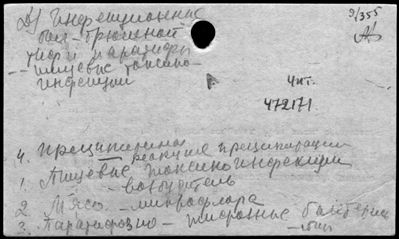 Д) Инфекционные
бол - брюшной
тиф и паратифы
- пищевые токсико-
инфекции
9/355
А
Чит.
472171.
4. Преципитины
реакция преципитации
1. Пищевые токсикоинфекции
- возбудитель
2. Мясо - микрофлора
3. Паратифозно - тифозные бактерии